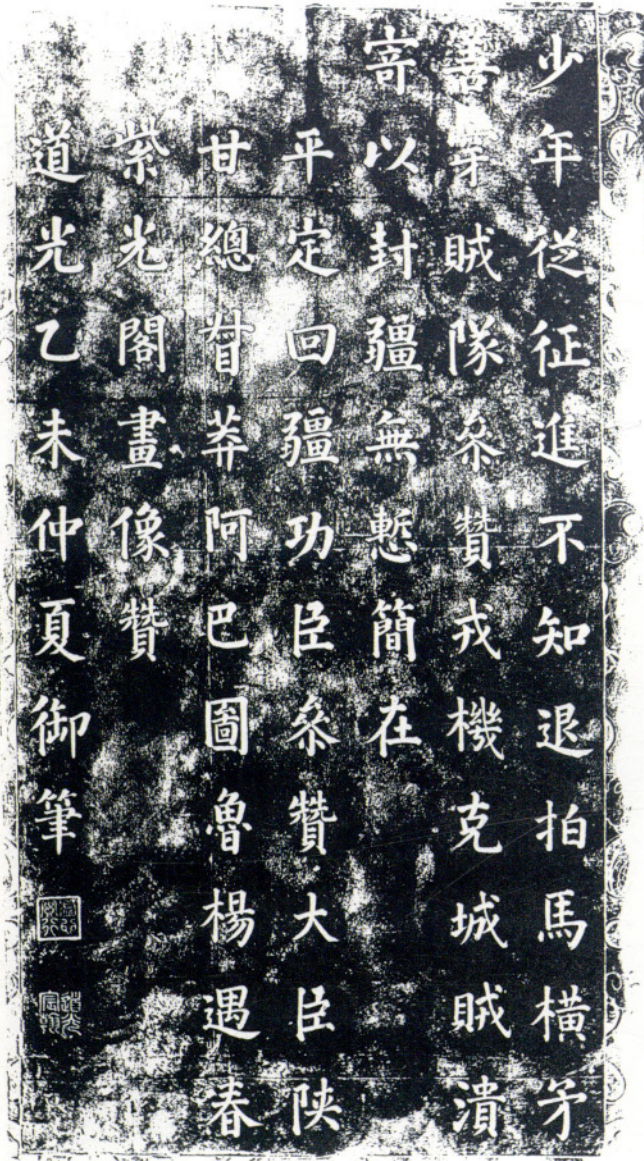 少年從征進不知退拍馬橫矛
善穿賊隊叅贊戎機克城賊潰
寄以封疆無慙簡在
平定回疆功臣叅贊大臣陝
甘總督莽阿巴圖魯楊遇春
紫光閣畫像贊
道光乙未仲夏御筆